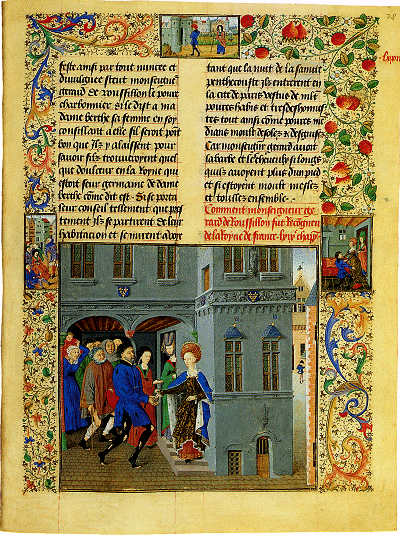 feste ainsi par tout nuncee et
divulguee sceut monseigneur
gerard de Roussillon le povre
charbonnier si le dist a ma
dame berthe sa femme en soy
conseillant a elle sil seroit
bon que ilz y alaissent pour
savoir silz trouveroient quel
que doulceur en la Royne qui
estoit seur germaine de dame
berthe come dit est. Si se porta
leur conseil tellement que pres
tement ilz se partirent de leur
habitacion et se mirent a voye
tant que la nuit de la sainte
penthecouste ilz entrerent en
la cite de paris vestus de mlt
povres habis et tres deshonnes
tes tout ainsi come povres
dians moult desolez et
Car monseigneur gerard avoit
la barbe et les cheveulx si longs
quilz avoyent plus dun pied
et si estoyent moult meslez
et touillez ensemble.
Comment monseigneur ge
rard de Roussillon fut Recogneu
de la Royne de france